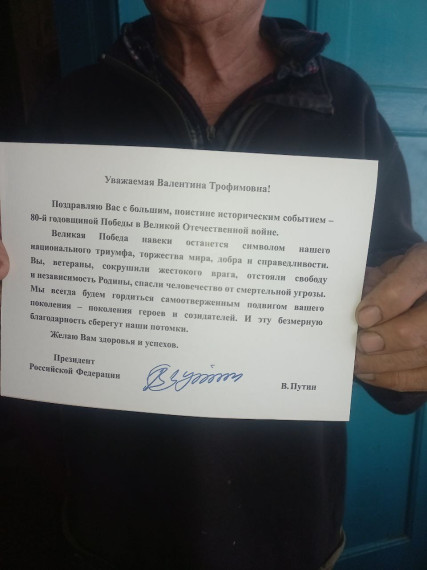 Уважаемая Валентина Трофимовна!
Поздравляю Вас с большим, поистине историческим событием –
80-й годовщиной Победы в Великой Отечественной войне.
Великая Победа навеки останется символом нашего
национального триумфа, торжества мира, добра и справедливости.
Вы, ветераны, сокрушили жестокого врага, отстояли свободу
и независимость Родины, спасли человечество от смертельной угрозы.
Мы всегда будем гордиться самоотверженным подвигом вашего
поколения – поколения героев и созидателей. И эту безмерную
благодарность сберегут наши потомки.
Желаю Вам здоровья и успехов.
Президент
Российской Федерации
В.Путин